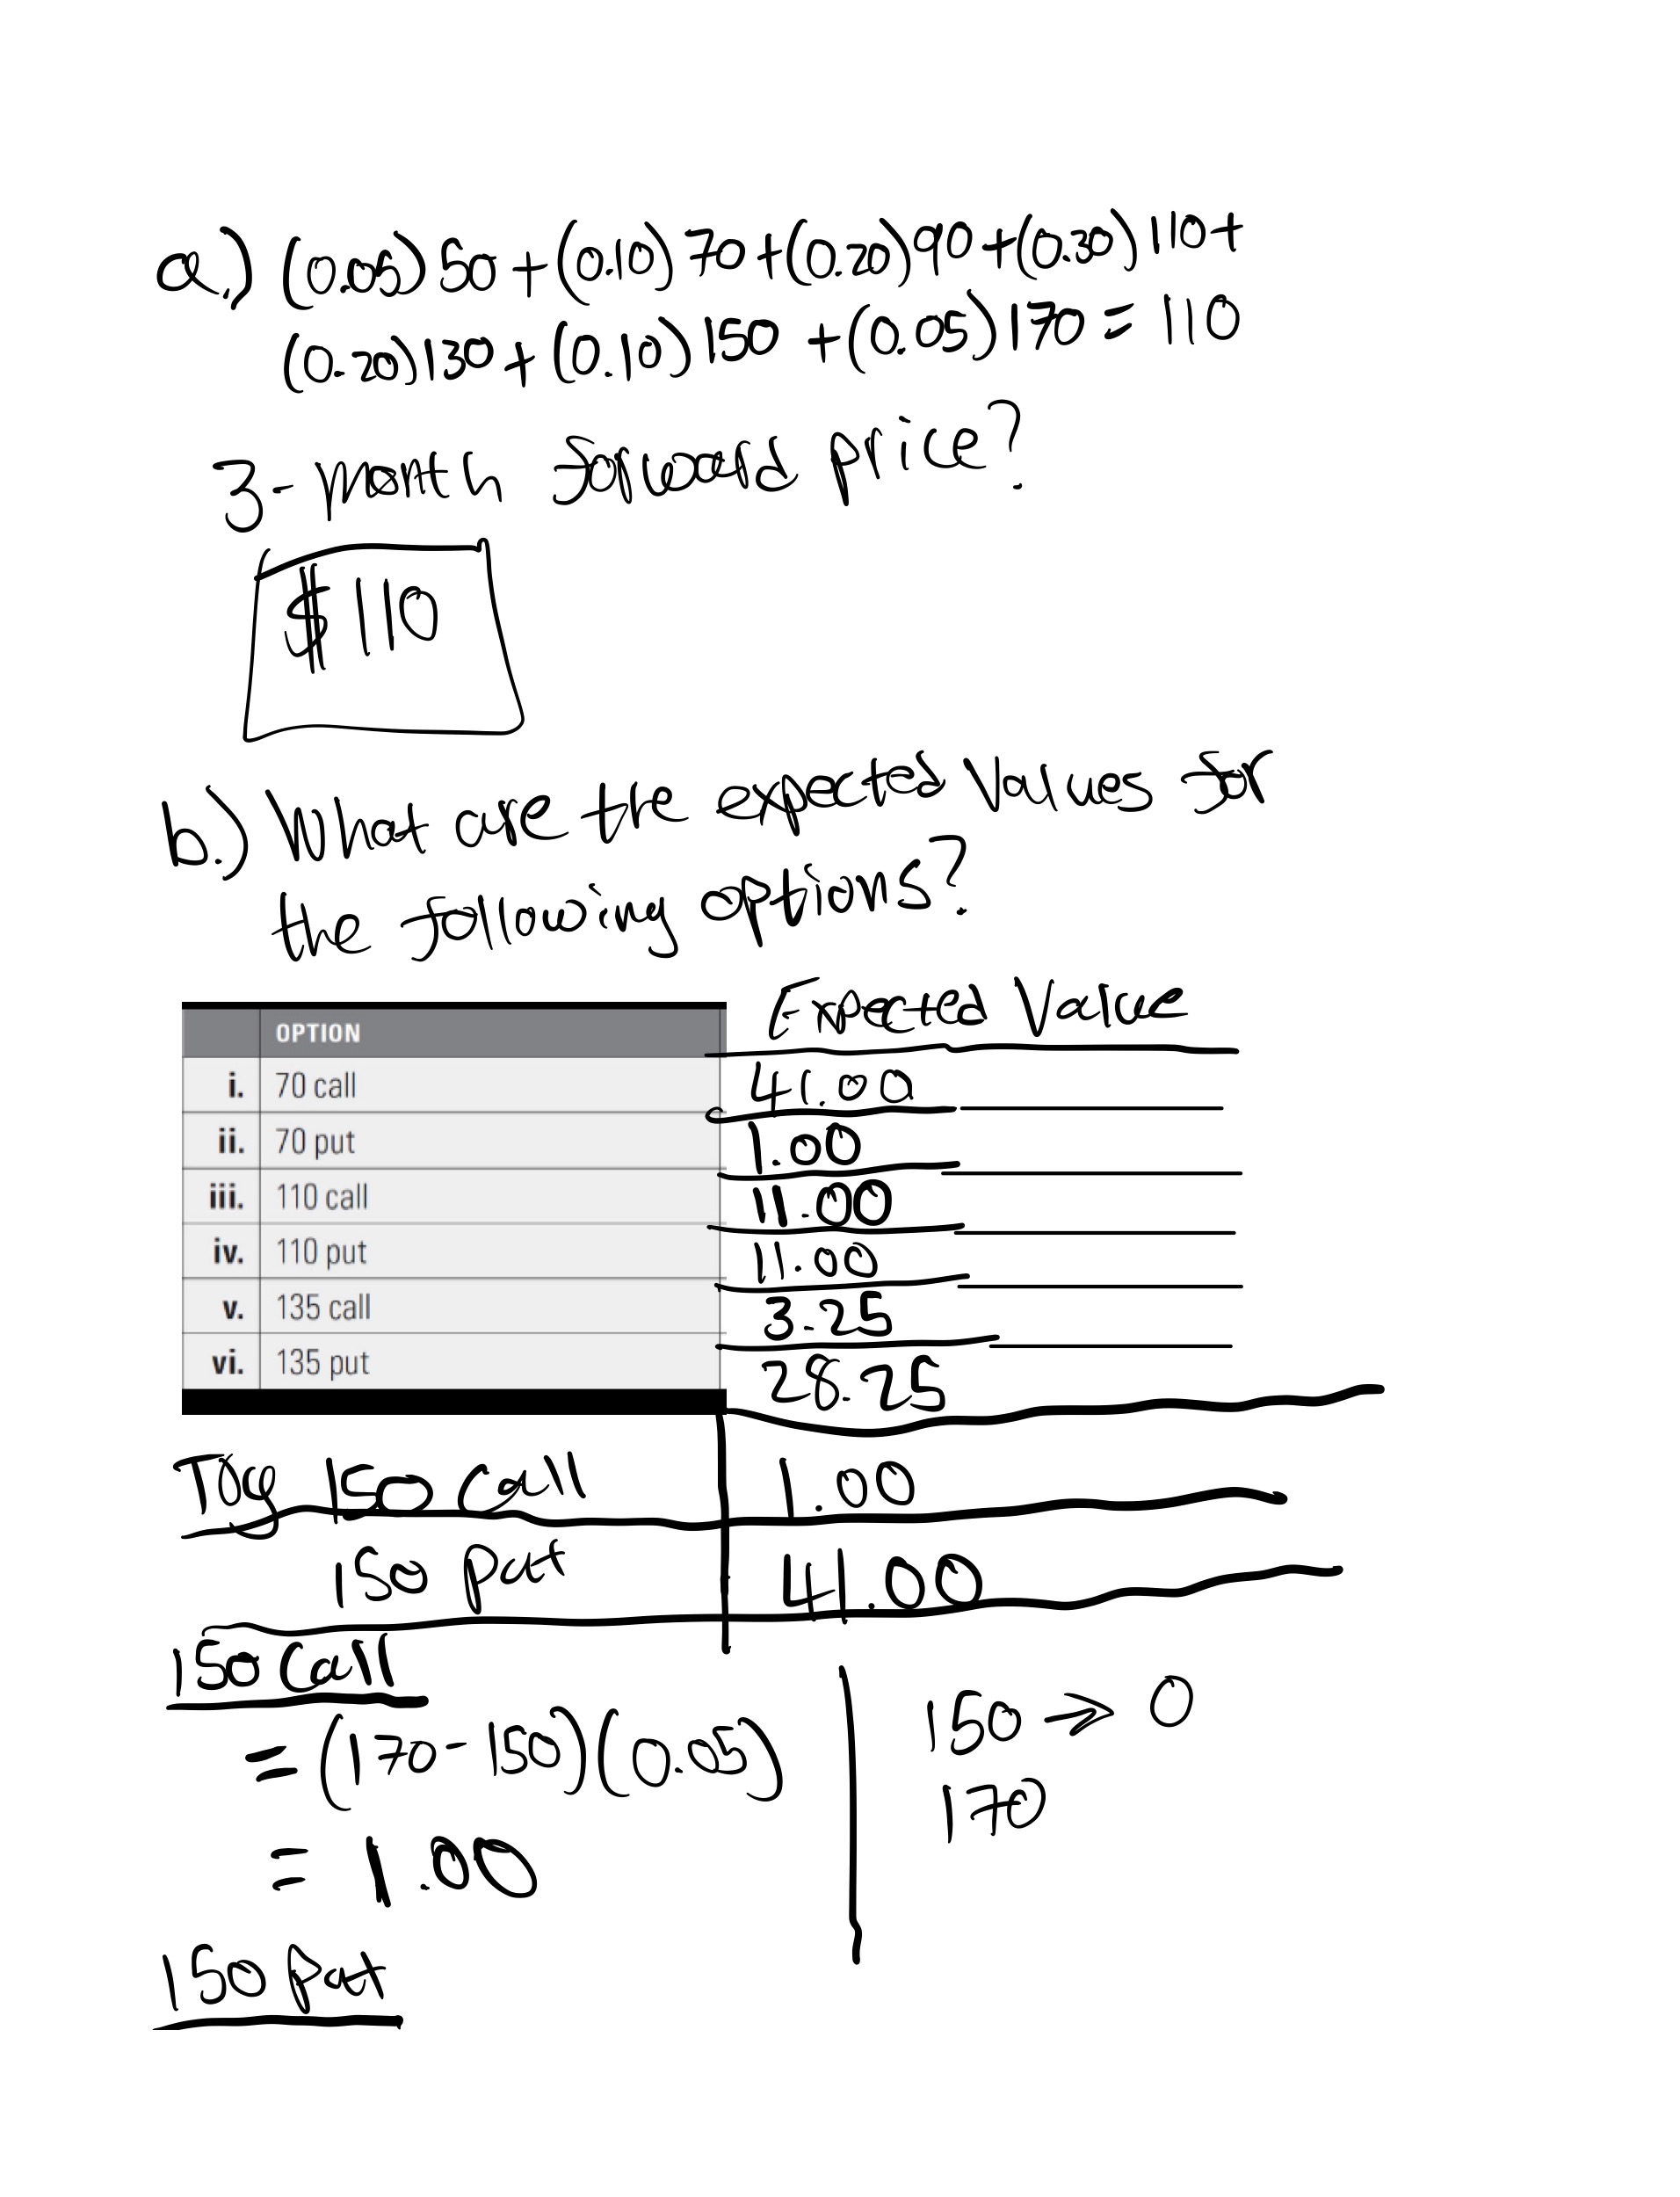 a.) (0.05) 50 + (0.10) 70 + (0.20) 90 + (0.30) 110 +
(0.20) 130 + (0.10) 150 + (0.05) 170 = 110
3-month forward price?
$110
b.) What are the expected values for
the following options?
OPTION Expected Value
i. 70 call 41.00
ii. 70 put 1.00
iii. 110 call 11.00
iv. 110 put 11.00
v. 135 call 3.25
vi. 135 put 28.25
150 call 1.00
150 put 41.00
150 call
= (170 - 150)(0.05)
= 1.00
150 → 0
170
150 put